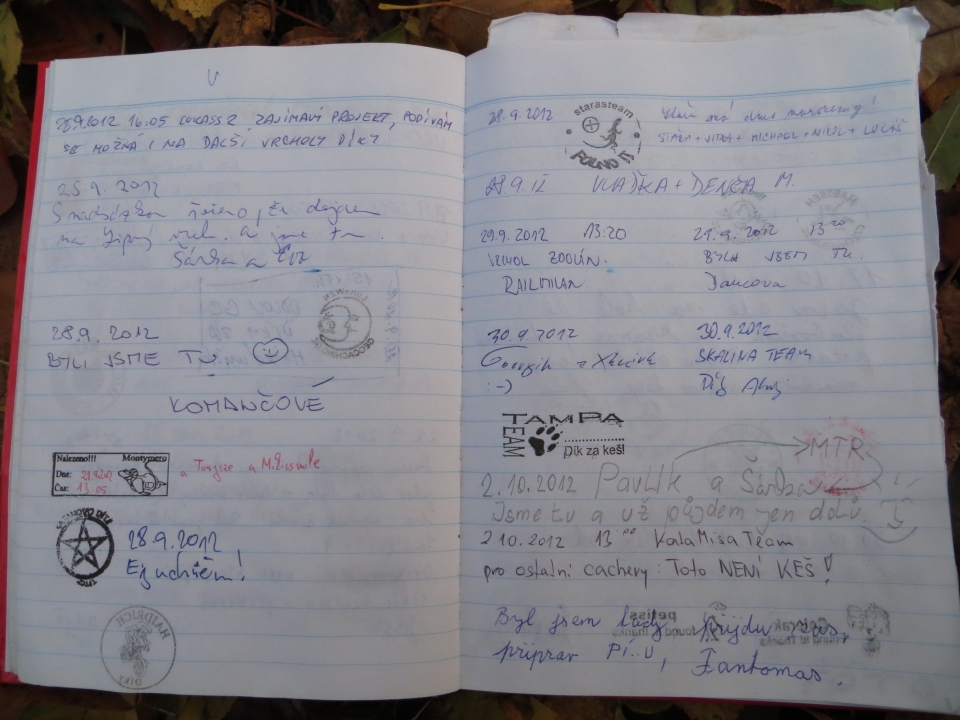 25.9.2012 16:05 LUKASS2 ZAJÍMAVÝ PROJEKT, PODÍVÁM
SE MOŽNÁ I NA DALŠÍ VRCHOLY DÍKY
25.9.2012
vrch. a jsme tu.
Šárka a
28.9.2012
BYLI JSME TU
KOMANČOVÉ
Nalezeno!!! Montymero
Dne: 28.9.2012
Čas: 13:05
28.9.2012
HAJDRICH
DIKI
28.9.2012 starasteam
FOUND IT
STAŇA + JITKA + MICHAL + NIKOL + LUKÁŠ
28.9.12 VLAĎKA + DENČA M.
29.9.2012 13:20
VRCHOL ZDOLÁN.
RAILMILAN
29.9.2012 13:20
BYLA JSEM TU.
Dancova
30.9.2012
:-)
30.9.2012
SKALINA TEAM
TAMPA
TEAM
Dík za keš!
MTR
2.10.2012 Pavlík a Šárka
Jsme tu a už půjdem jen dolů.
2.10.2012 13:00 KalaMisa Team
pro ostatní cachery: Toto NENÍ KEŠ!
Byl jsem tady, přijdu zas,
připrav PI..U, Fantomas.